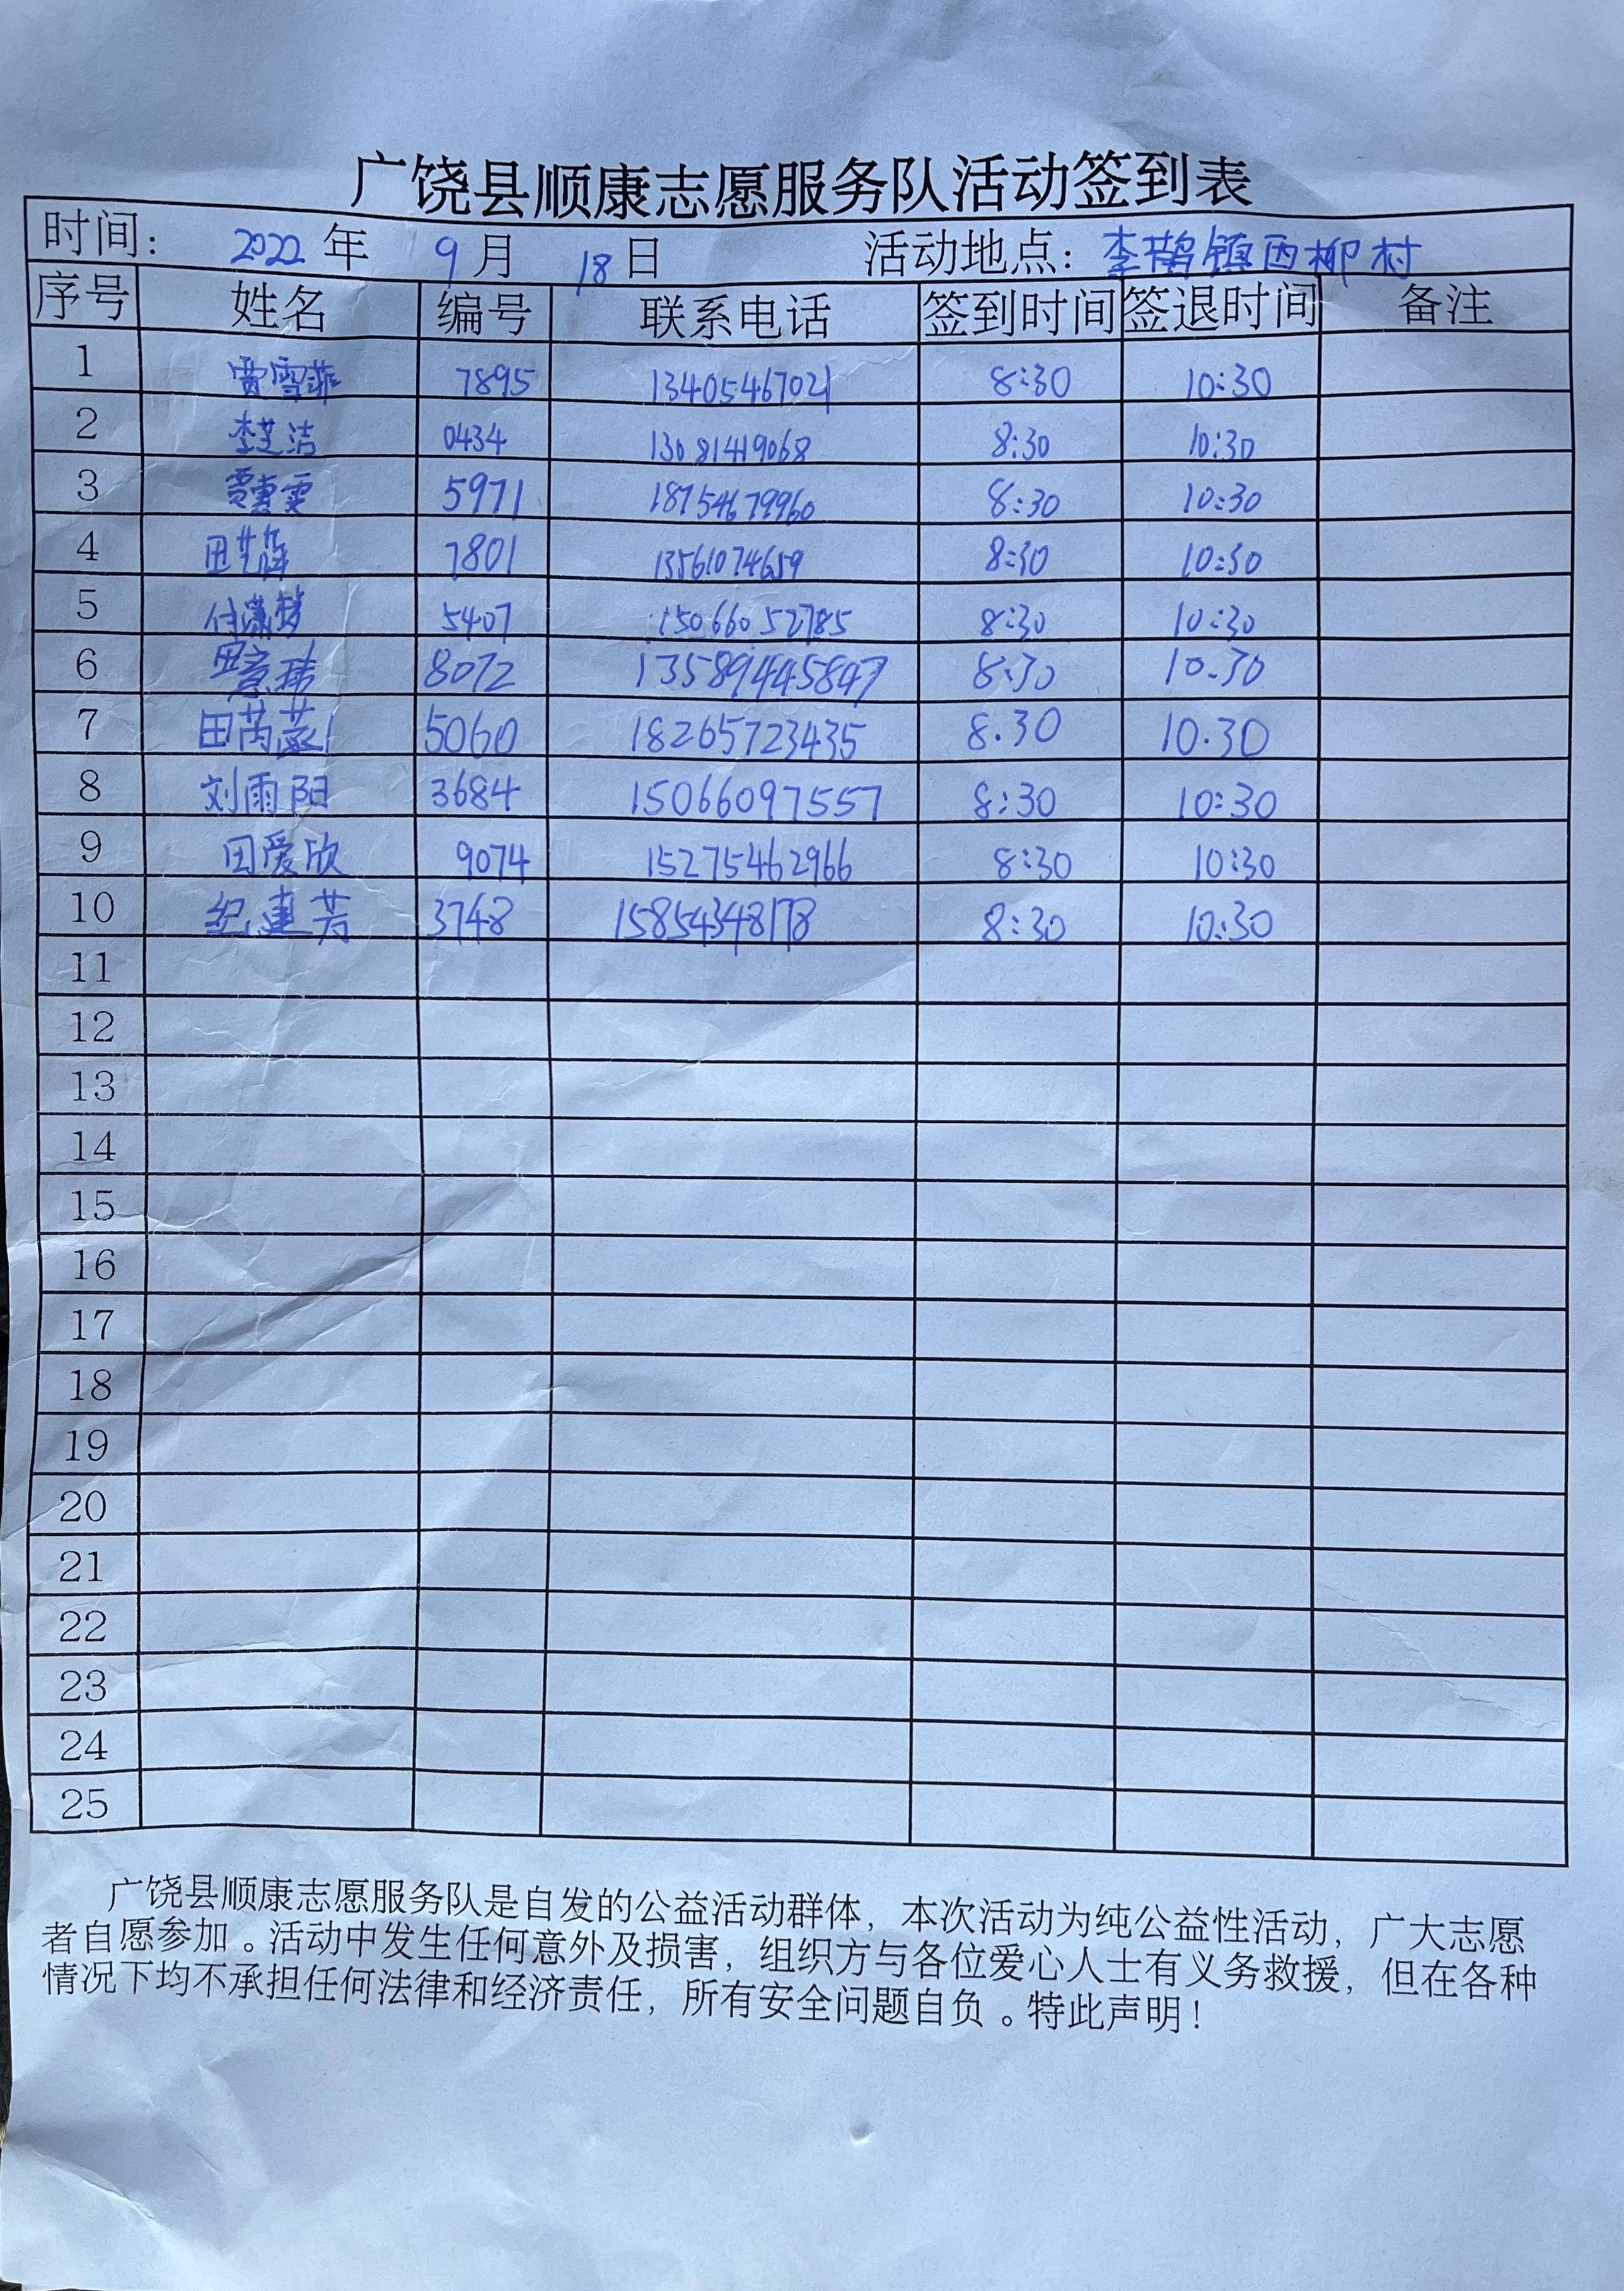 广饶县顺康志愿服务队活动签到表
时间： 2022 年 9 月 18 日 活动地点：李鹊镇西柳村
序号 姓名 编号 联系电话 签到时间 签退时间 备注
1 贾雪菲 7895 13405467021 8:30 10:30
2 李芝洁 0434 13081419068 8:30 10:30
3 贾惠雯 5971 18754679960 8:30 10:30
4 7801 13561074659 8:30 10:30
5 付潇梦 5407 15066052785 8:30 10:30
6 8072 135894445847 8:30 10.30
7 田芮蕊 5060 18265723435 8.30 10.30
8 刘雨阳 3684 15066097557 8:30 10:30
9 田爱欣 9074 15275462966 8:30 10:30
10 纪建芳 3748 15854348178 8:30 10:30
11
12
13
14
15
16
17
18
19
20
21
22
23
24
25
广饶县顺康志愿服务队是自发的公益活动群体，本次活动为纯公益性活动，广大志愿
者自愿参加。活动中发生任何意外及损害，组织方与各位爱心人士有义务救援，但在各种
情况下均不承担任何法律和经济责任，所有安全问题自负。特此声明！